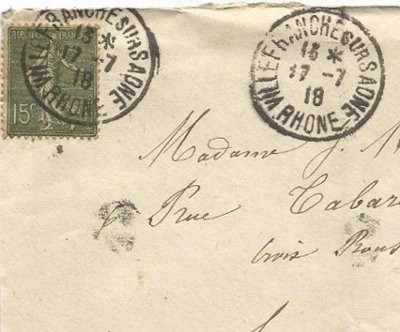 REPUBLIQUE FRANÇAISE
15c
VILLEFRANCHE SUR SAONE
15 *
17 -7
18
RHONE
VILLEFRANCHE SUR SAONE
15 *
17 -7
18
RHONE
Madame J. M
Rue Tabar
Croix Rous